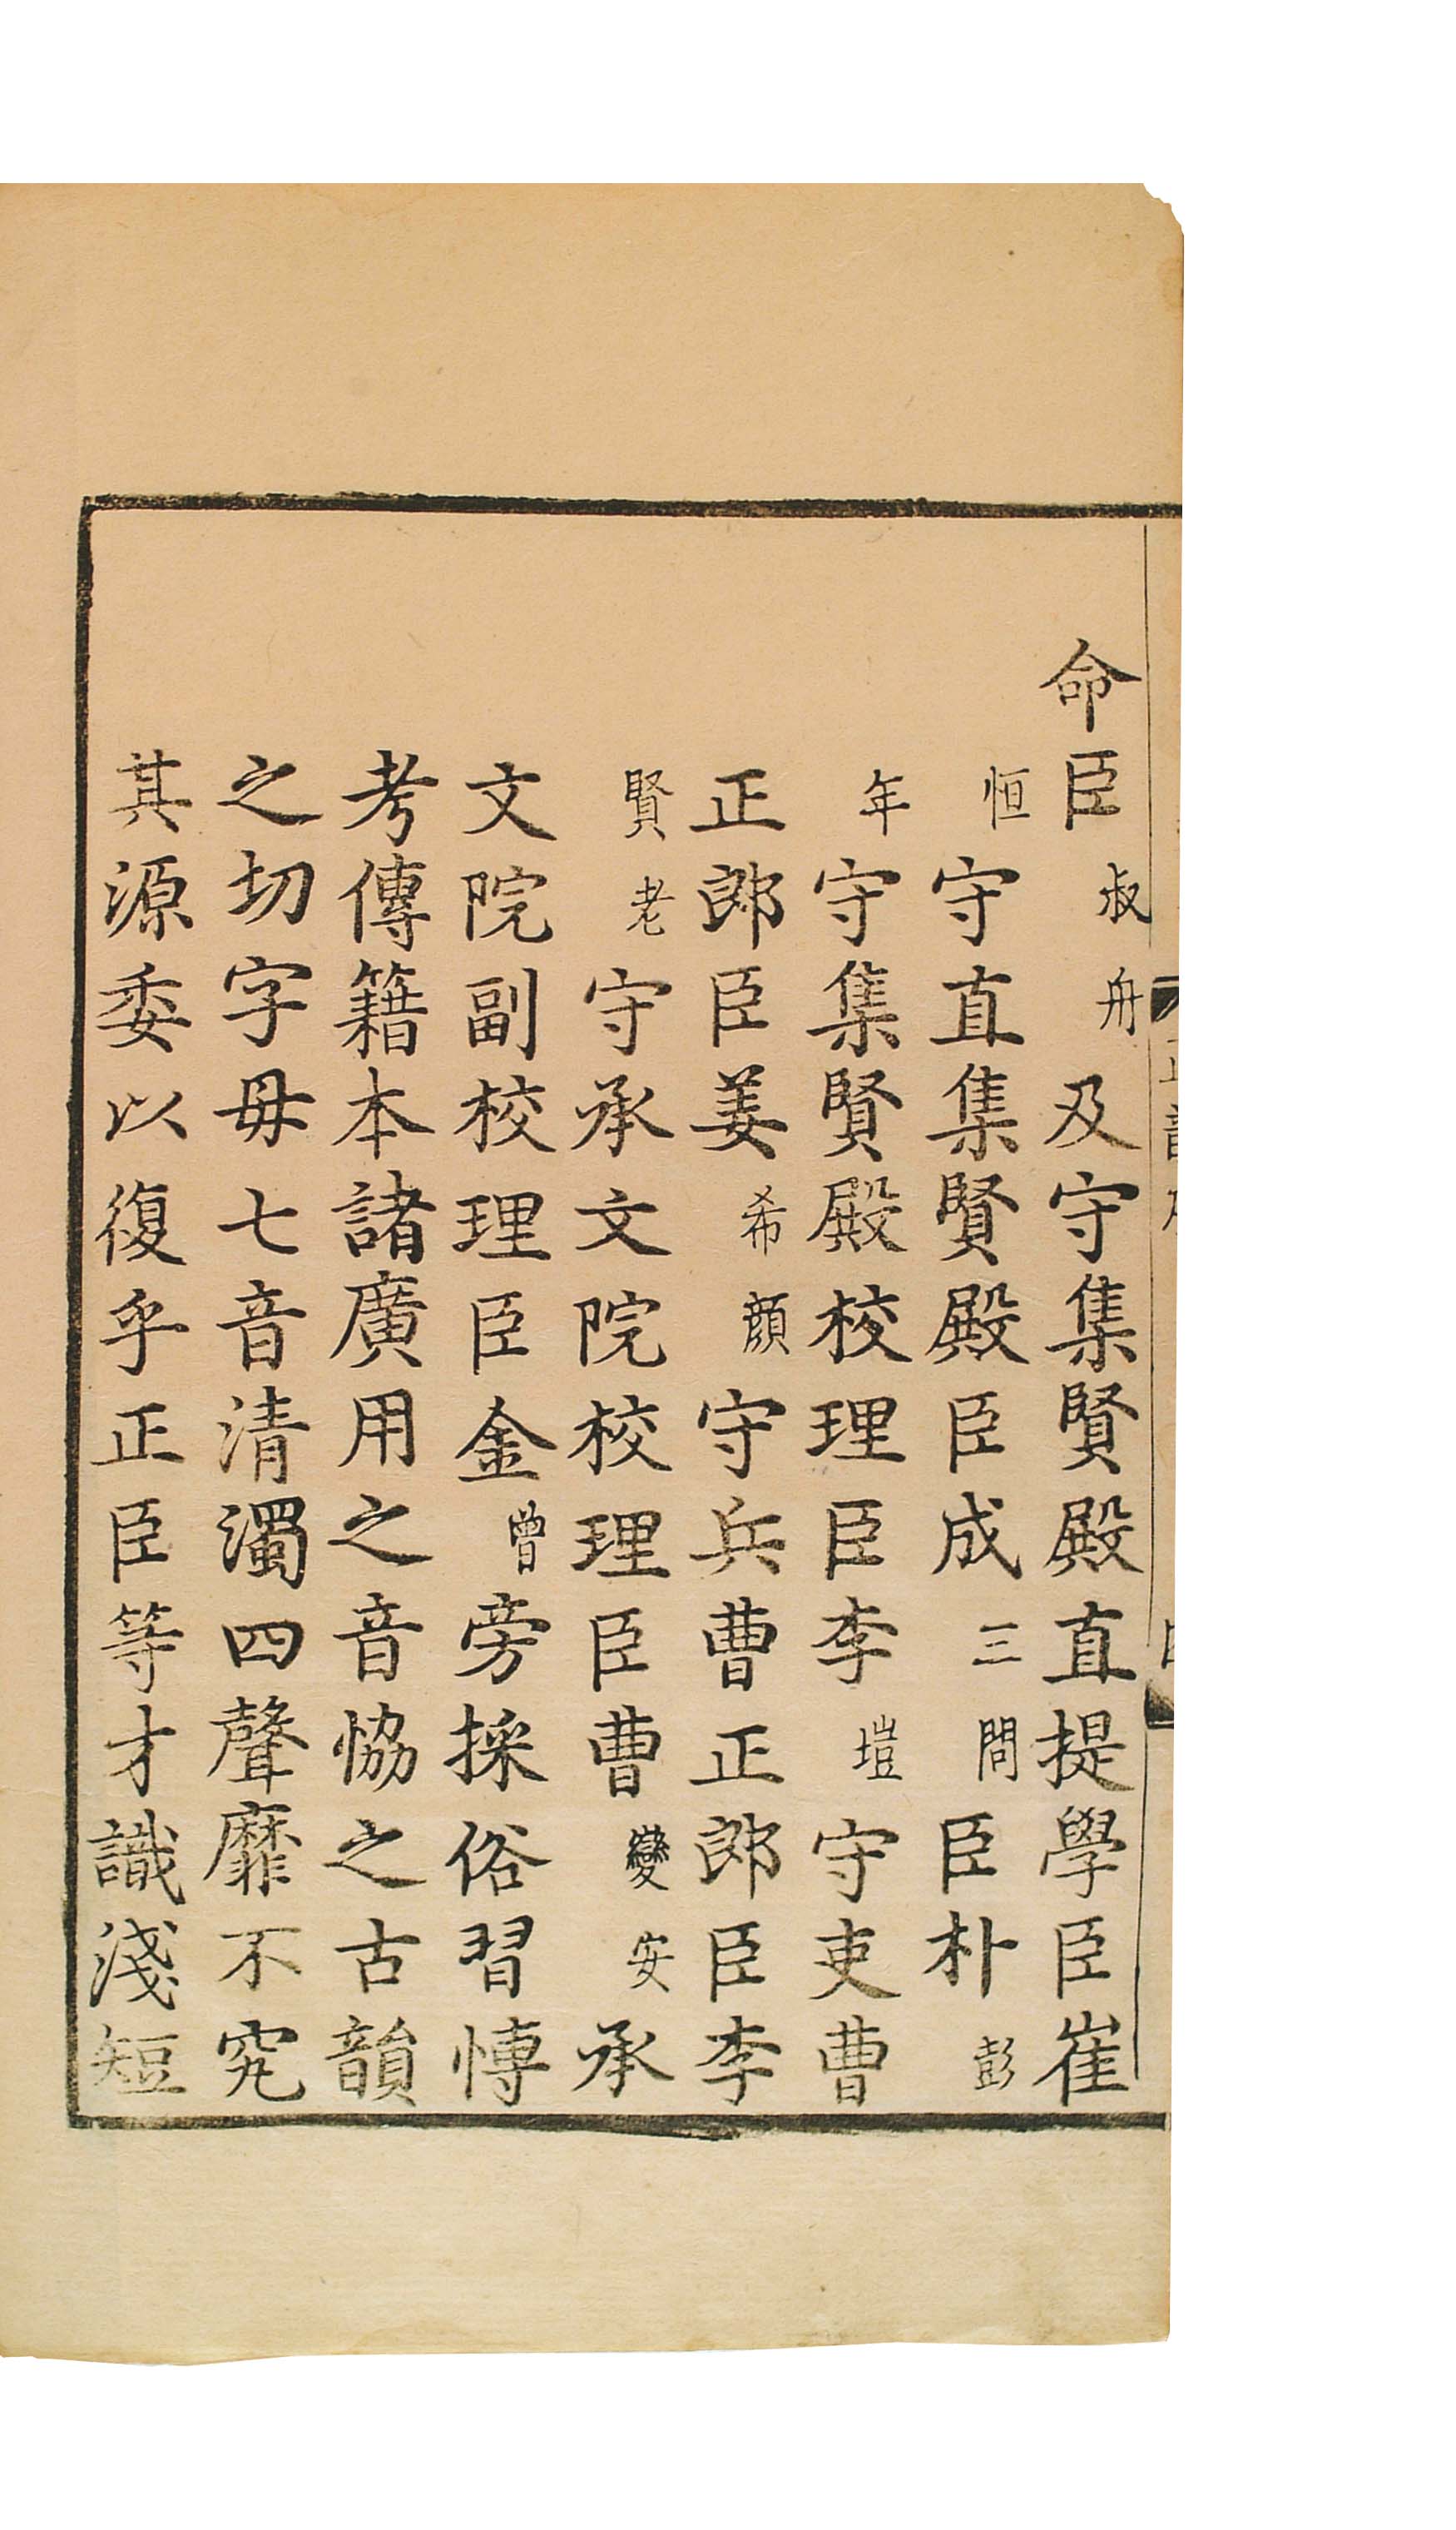 命臣叔舟及守集賢殿直提學臣崔
恒守直集賢殿臣成三問臣朴彭
年守集賢殿校理臣李塏守吏曹
正郎臣姜希顔守兵曹正郎臣李
賢老守承文院校理臣曹變安承
文院副校理臣金曾旁採俗習慱
考傳籍本諸廣用之音恊之古韻
之切字母七音清濁四聲靡不究
其源委以復乎正臣等才識淺短